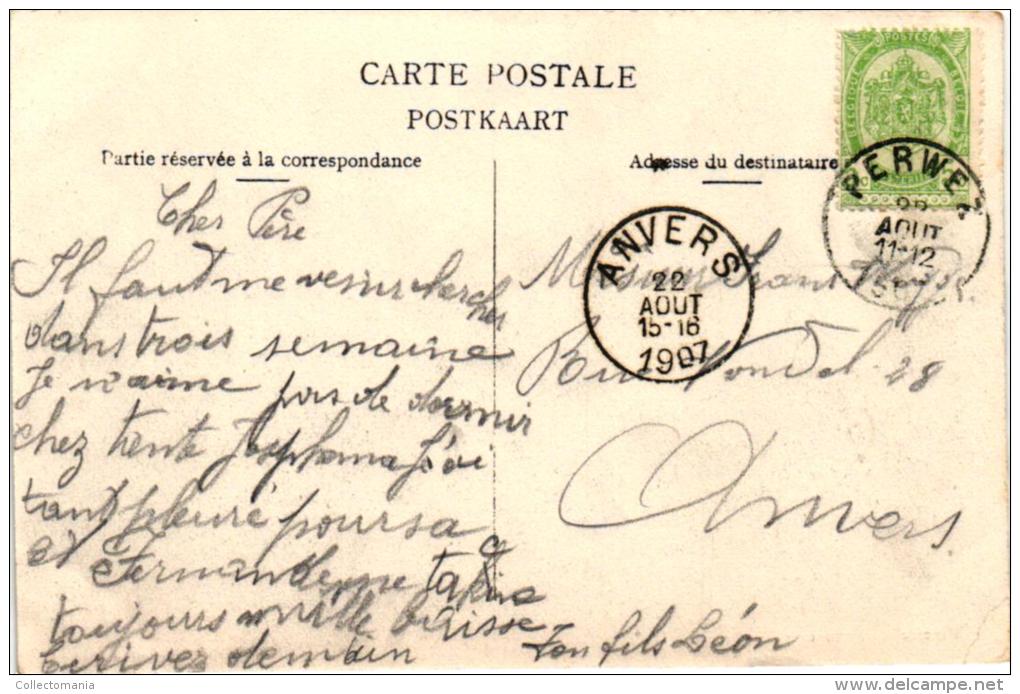 CARTE POSTALE
POSTKAART
Partie réservée à la correspondance
Adresse du destinataire
POSTES
BELGIQUE BELGIË
PERWEZ
22
AOUT
11-12
ANVERS
22
AOUT
15-16
1907
Cher Père
Il faut me venir chercher
dans trois semaine
Je n'aime pas de dormir
chez tente j'ai
tant pleuré pour sa
et Fernande me
toujours mille baisse
Ecrivez demain
Ton fils Léon
Monsieur Frans
Rue 28
Anvers
Collectomania
delcampe.net